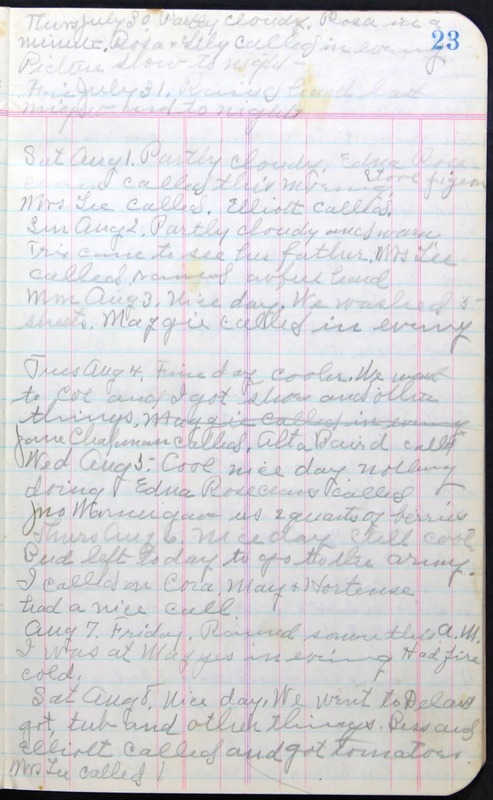 23
Thurs July 30 Partly cloudy. Rosa in a
minute. Rosa & Lily called in evening
Picture show to night -
Fri July 31, Rained hard last
night and to night
Sat Aug 1. Partly cloudy, Edna Rose
crans called this morning
Mrs Lee called. Elliott called.
Sun Aug 2. Partly cloudy and warm
Trix came to see his father. Mrs Lee
called, rained awful hard
Mon Aug 3, Nice day, We washed 5
shirts. Maggie called in evening
Tues Aug 4, Fine day cooler. We went
to Cot and I got shoes and other
things. Maggie called in evening
Jane Chapman called, Alta Baird called
Wed Aug 5- Cool nice day nothing
doing Edna Rosecrans called
Jno Warner gave us 2 quarts of berries
Thurs Aug 6. Nice day still cool
Bud left today to go to the army.
I called on Cora, May & Hortense
had a nice call.
Aug 7. Friday. Rained some this A.M.
I was at Maggies in evening Had fire
cold.
Sat Aug 8, Nice day, We went to Delaw
got tub and other things. Bess and
Elliott called and got tomatoes.
Mrs Lee called